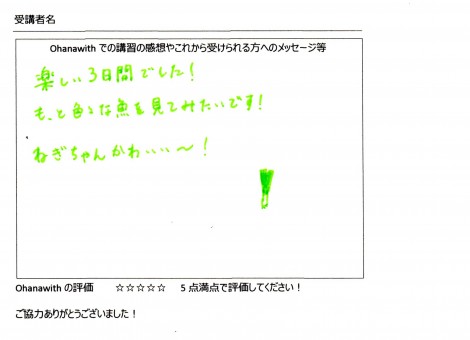 受講者名
Ohanawith での講習の感想やこれから受けられる方へのメッセージ等
楽しい3日間でした!
もっと色々な魚を見てみたいです!
ねぎちゃんかわいい〜!
Ohanawith の評価 ☆☆☆☆☆ 5 点満点で評価してください!
ご協力ありがとうございました!